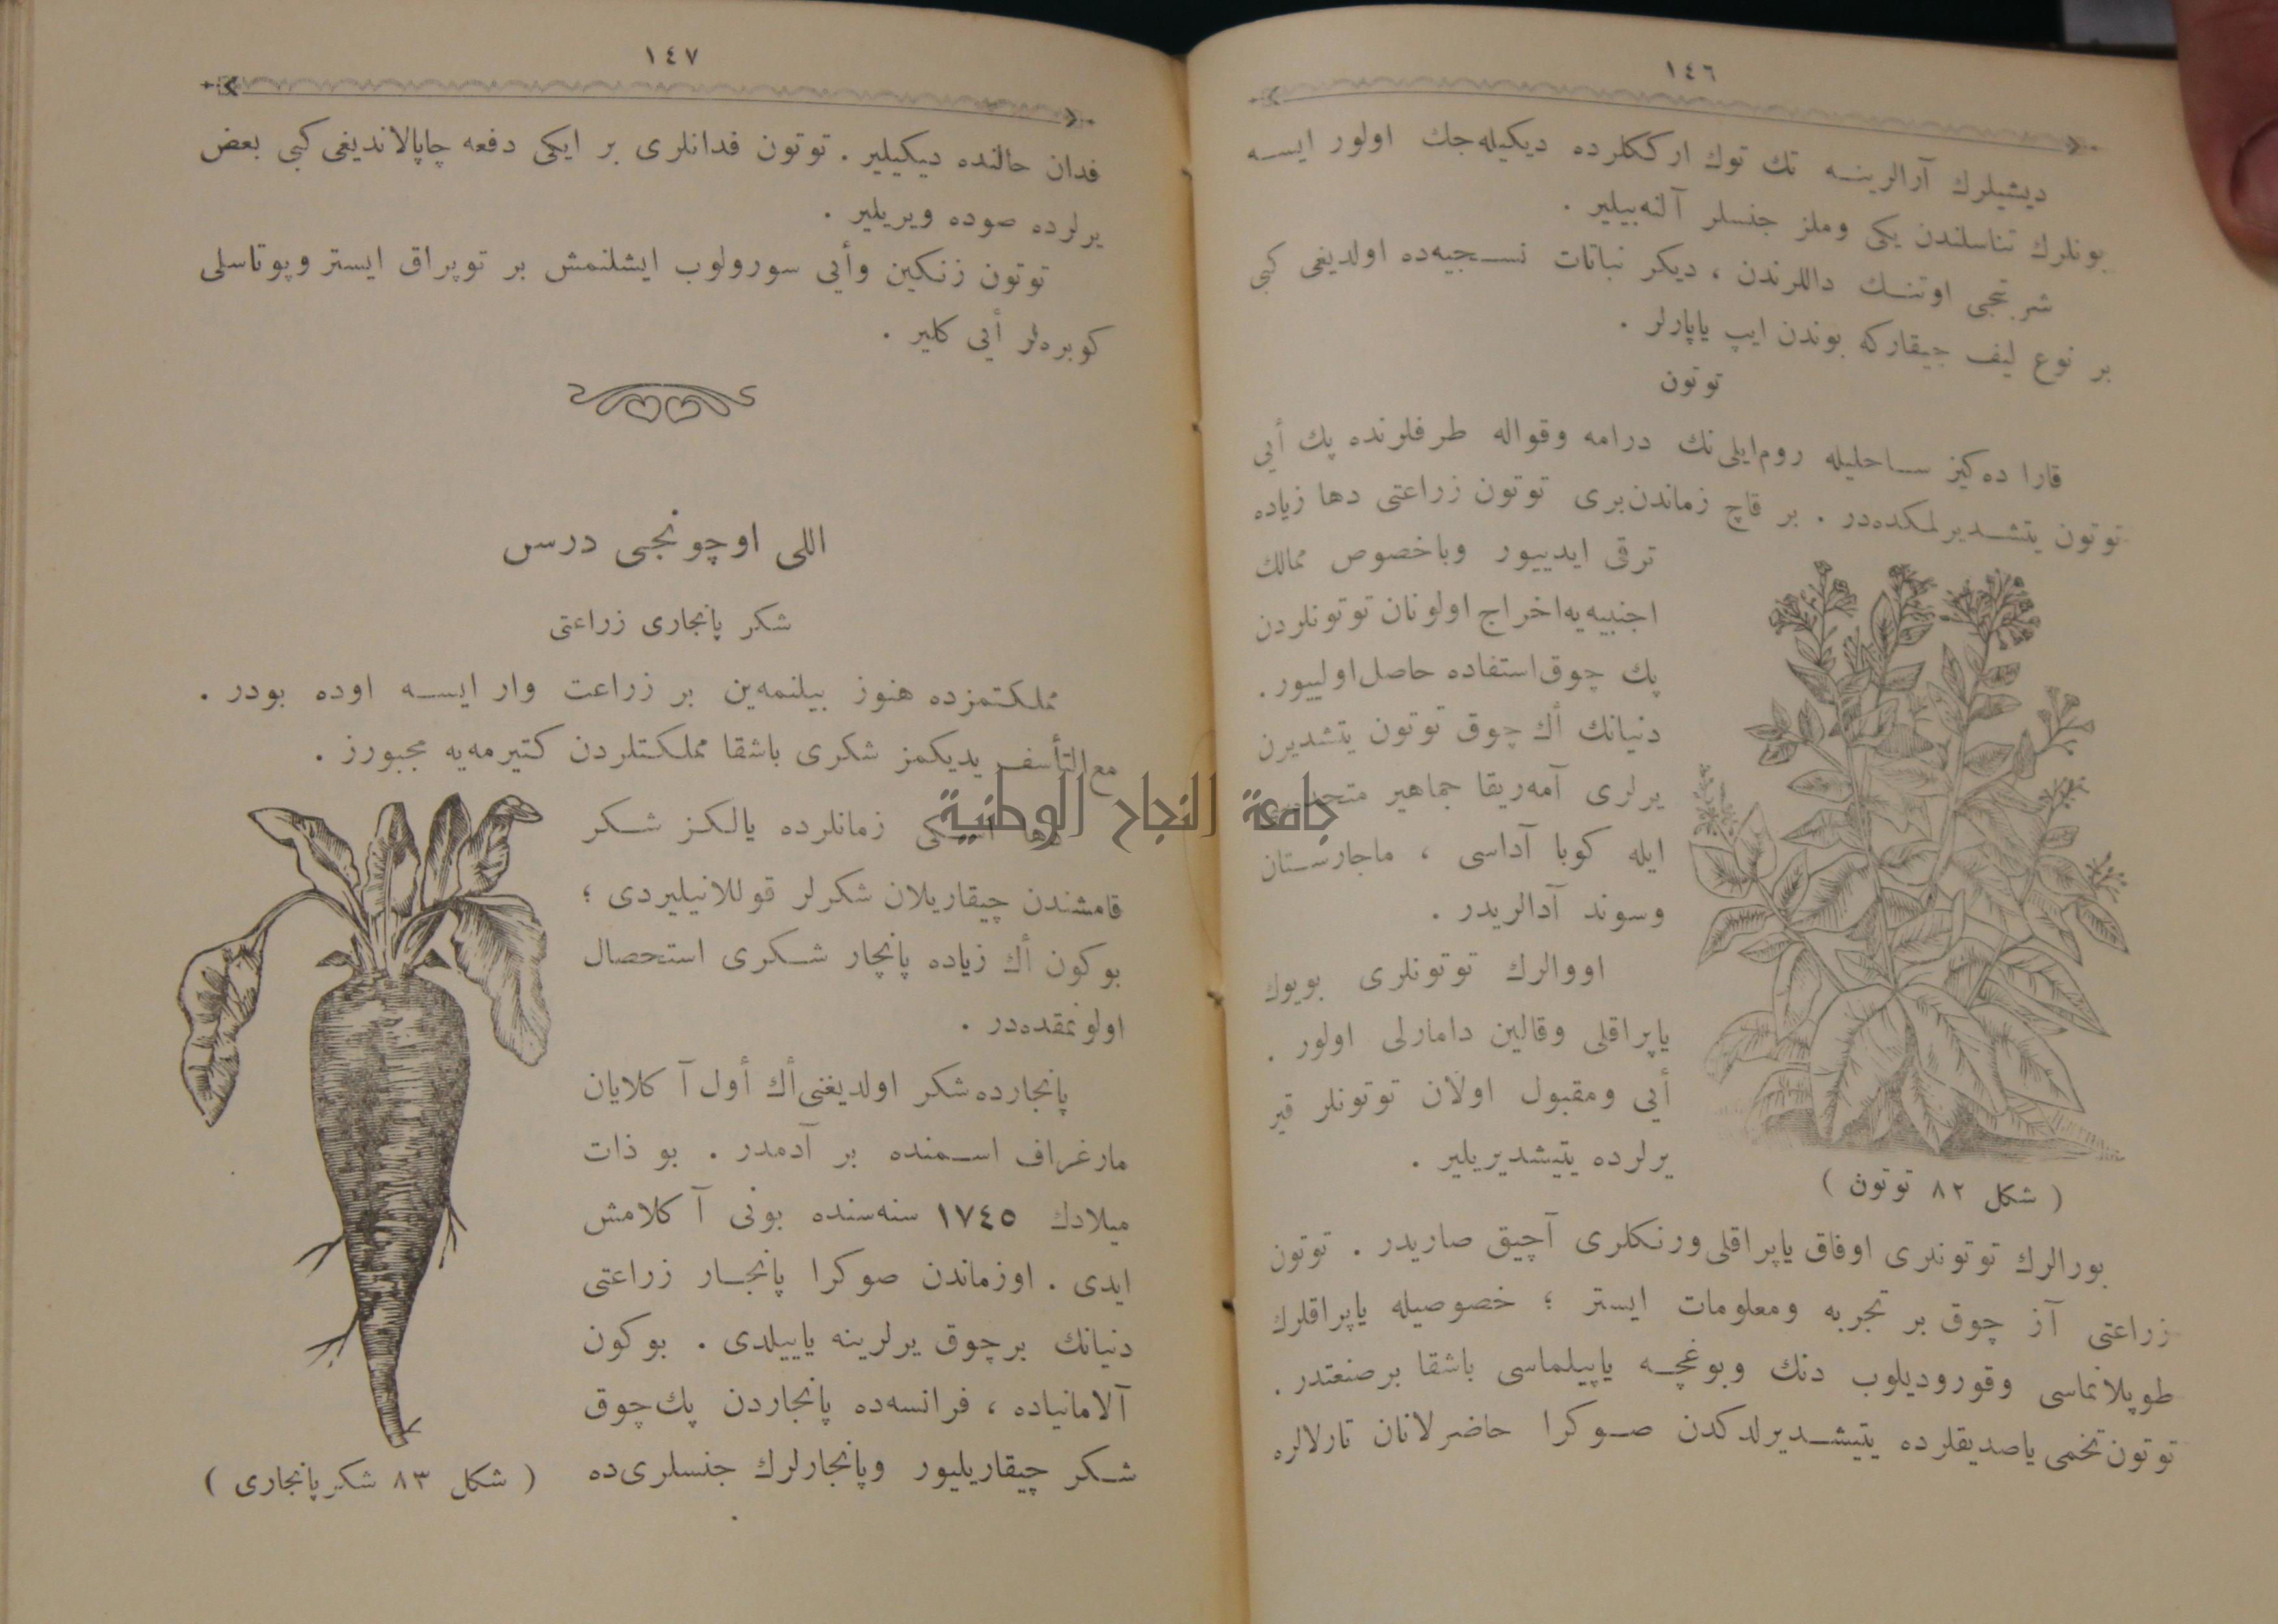 ١٤٦
ديشيلرك آرالرينه تك توك ارككلرده ديكيله‌جك اولور ايسه
بونلرك تناسلندن يكى وملز جنسلر آلنه‌بيلير .
شربتجى اوتنك داللرندن ، ديكر نباتات نسجيه‌ده اولديغى كبى
بر نوع ليف چيقاركه بوندن ايپ ياپارلر .
توتون
قارا ده‌كيز ساحليله روم‌ايلى‌نك درامه وقواله طرفلرنده پك أيى
توتون يتشديرلمكده‌در . بر قاچ زماندن‌برى توتون زراعتى دها زياده
ترقى ايدييور وباخصوص ممالك
اجنبيه‌يه اخراج اولونان توتونلردن
پك چوق استفاده حاصل اولييور .
دنيانك أك چوق توتون يتشديرن
يرلرى آمه‌ريقا جماهير متحده‌سى
ايله كوبا آداسى ، ماجارستان
وسوند آدالريدر .
اووالرك توتونلرى بويوك
ياپراقلى وقالين دامارلى اولور .
أيى ومقبول اولان توتونلر قير
يرلرده يتيشديريلير .
( شكل ٨٢ توتون )
بورالرك توتونلرى اوفاق ياپراقلى ورنكلرى آچيق صاريدر . توتون
زراعتى آز چوق بر تجربه ومعلومات ايستر ؛ خصوصيله ياپراقلرك
طوپلانماسى وقوروديلوب دنك وبوغچه ياپيلماسى باشقا برصنعتدر .
توتون تخمى ياصديقلرده يتيشديرلدكدن صوكرا حاضرلانان تارلالره
١٤٧
فدان حالنده ديكيلير . توتون فدانلرى بر ايكى دفعه چاپالانديغى كبى بعض
يرلرده صوده ويريلير .
توتون زنكين وأيى سورولوب ايشلنمش بر توپراق ايستر وپوتاسلى
كوبره‌لر أيى كلير .
اللى اوچونجى درس
شكر پانجارى زراعتى
مملكتمزده هنوز بيلنمه‌ين بر زراعت وار ايسه اوده بودر .
مع‌التأسف يديكمز شكرى باشقا مملكتلردن كتيرمه‌يه مجبورز .
دها اسكى زمانلرده يالكز شكر
قامشندن چيقاريلان شكرلر قوللانيليردى ؛
بوكون أك زياده پانچار شكرى استحصال
اولونمقده‌در .
پانجارده شكر اولديغنى أك أول آكلايان
مارغراف اسمنده بر آدمدر . بو ذات
ميلادك ١٧٤٥ سنه‌سنده بونى آكلامش
ايدى . اوزماندن صوكرا پانجار زراعتى
دنيانك برچوق يرلرينه ياييلدى . بوكون
آلامانياده ، فرانسه‌ده پانجاردن پك چوق
شكر چيقاريليور وپانجارلرك جنسلرى‌ده
( شكل ٨٣ شكر پانجارى )
جامعة النجاح الوطنية